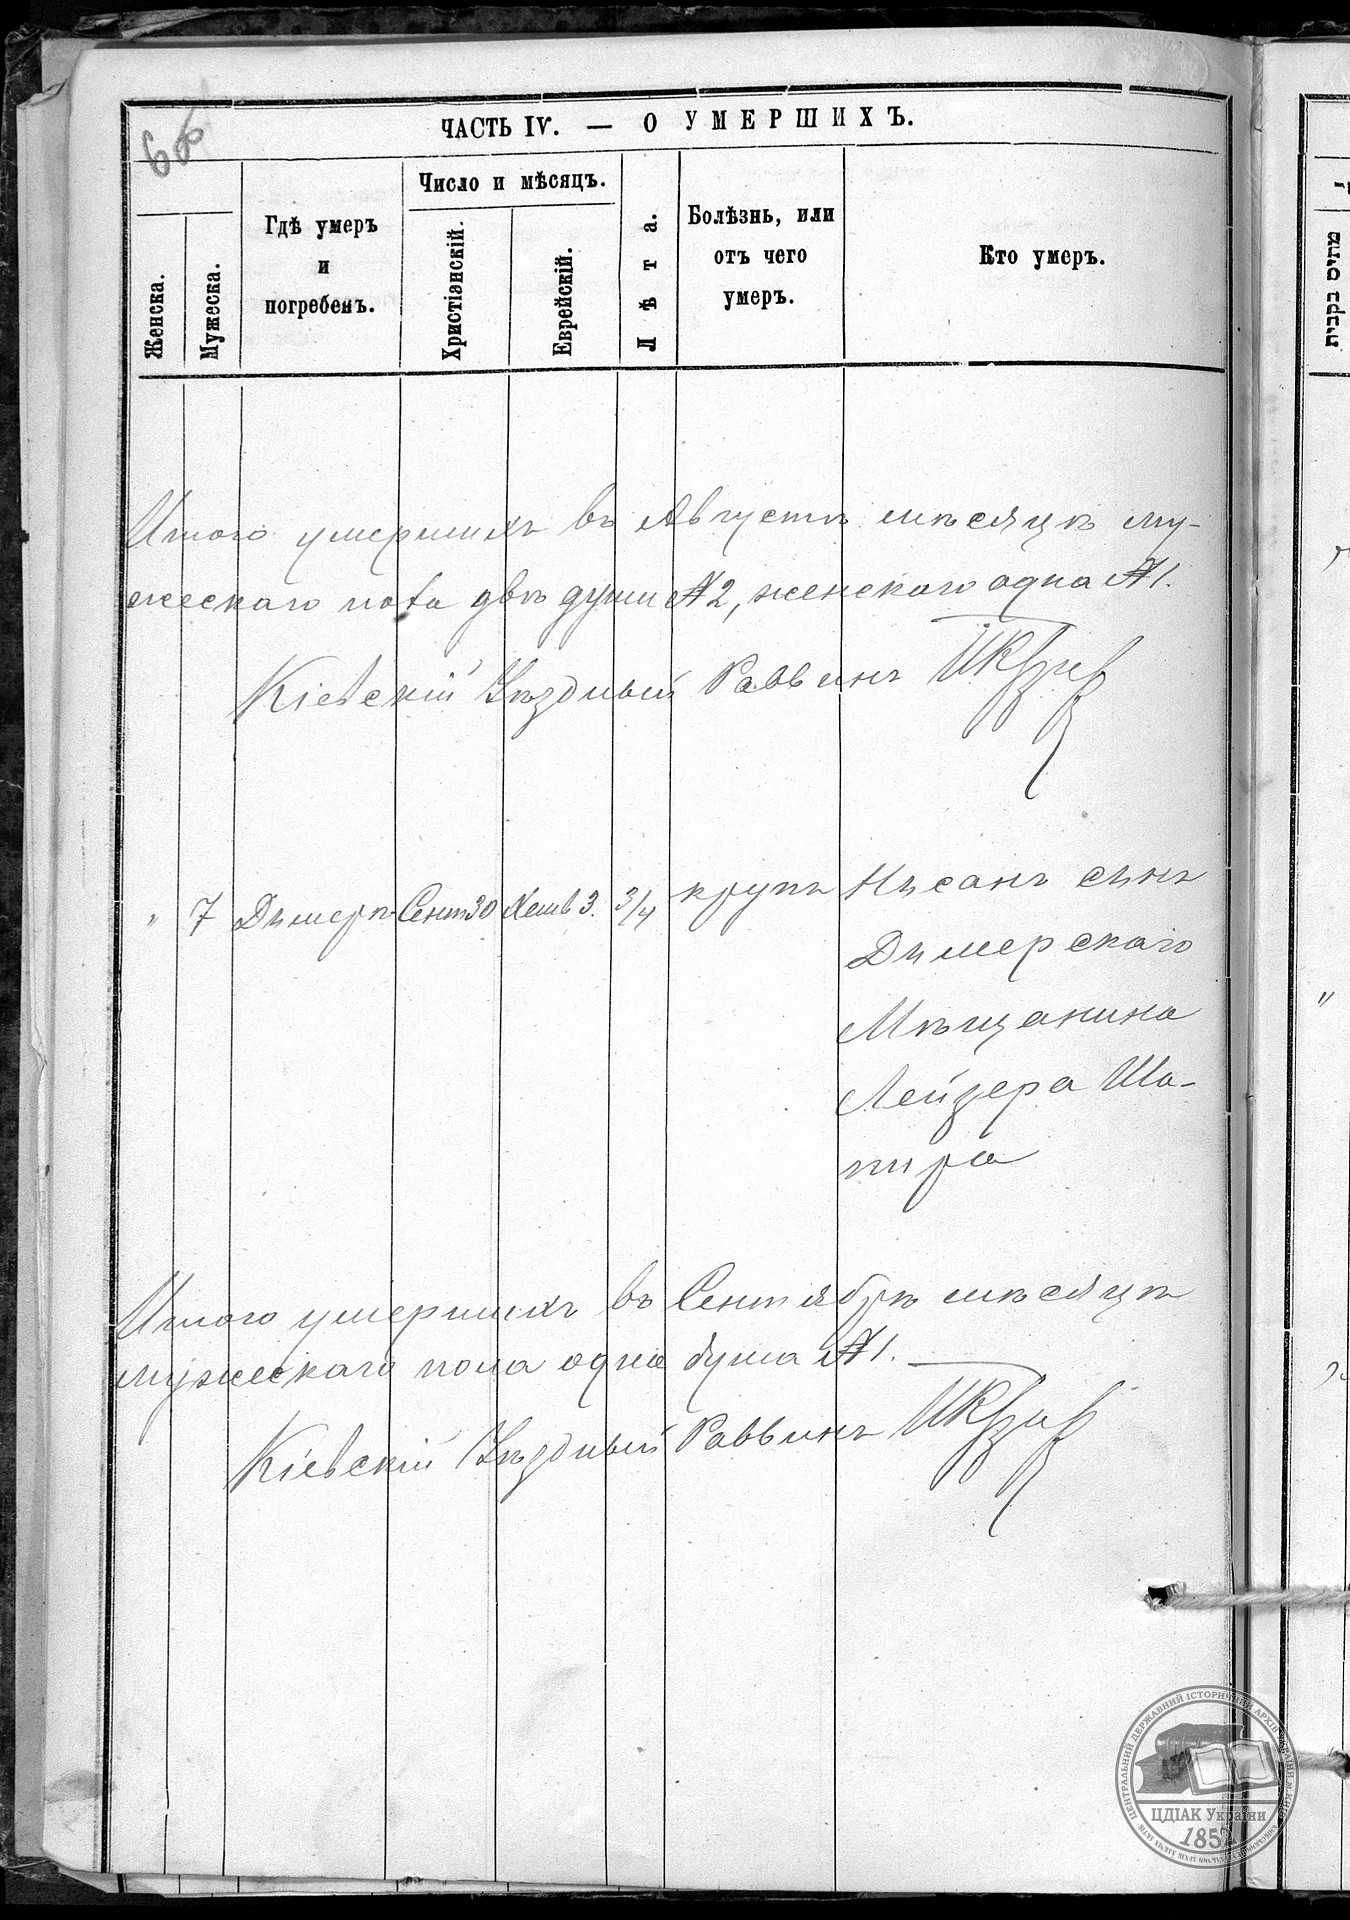 ЧАСТЬ IV. — О УМЕРШИХЪ.
Женска.
Мужеска.
Гдѣ умеръ
и
погребенъ.
Число и мѣсяцъ.
Христіэнскій.
Еврейскій.
Лѣта.
Болѣзнь, или
отъ чего
умеръ.
Кто умеръ.
Итого умершихъ въ Августѣ мѣсяцѣ му-
жескаго пола двѣ души № 2, женскаго одна № 1.
Кіевскій Уѣздный Раввинъ
" 7 Дымеръ Сент 30 Хешв 3. 3/4 крупъ Нысанъ сынъ
Дымерскаго
Мѣщанина
Лейзера Ша-
пира
Итого умершихъ въ Сентябрѣ мѣсяцѣ
мужескаго пола одна душа № 1.
Кіевскій Уѣздный Раввинъ
מתים בקבית
ЦЕНТРАЛЬНИЙ ДЕРЖАВНИЙ ІСТОРИЧНИЙ АРХІВ УКРАЇНИ м. КИЇВ
ЦДІАК України
1852